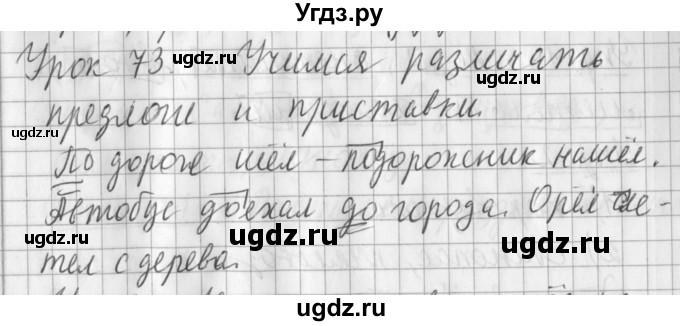 Угдз.ру
Урок 73. Учимся различать
предлоги и приставки.
По дороге шёл – подорожник нашёл.
Автобус доехал до города. Орёл сле-
тел с дерева.
ugdz.ru
ugdz.ru
ugdz.ru
ugdz.ru
ugdz.ru
ugdz.ru
ugdz.ru
ugdz.ru
ugdz.ru
ugdz.ru
ugdz.ru